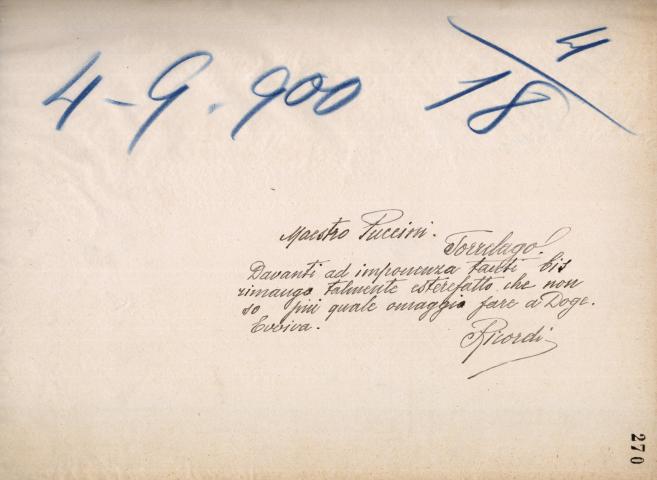 4-9.900
4
18
Maestro Puccini.
Torrelago!
Davanti ad imponenza tanti bis
rimango talmente esterefatto che non
so più quale omaggio fare a Doge.
Evviva.
Ricordi
270